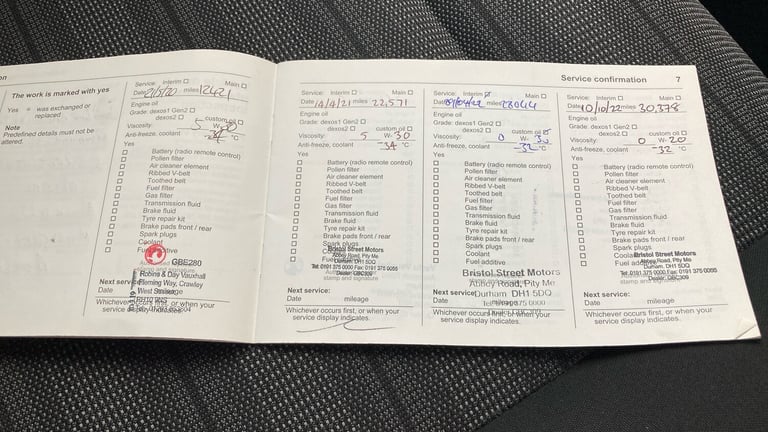 on
The work is marked with yes
Yes = was exchanged or
replaced
Note
Predefined details must not be
altered.
Service: Interim Main
Date 21/5/20 miles 12421
Engine oil
Grade: dexos1 Gen2
dexos2 custom oil
Viscosity: 5 W- 30
Anti-freeze, coolant -34 °C
Yes
Battery (radio remote control)
Pollen filter
Air cleaner element
Ribbed V-belt
Toothed belt
Fuel filter
Gas filter
Transmission fluid
Brake fluid
Tyre repair kit
Brake pads front / rear
Spark plugs
Coolant
Fuel additive
GBE280
Robins & Day Vauxhall
Fleming Way, Crawley
West Sussex
Next service:
Date mileage
Whichever occurs first, or when your
service display indicates.
Service: Interim Main
Date 14/4/21 miles 22,571
Engine oil
Grade: dexos1 Gen2
dexos2 custom oil
Viscosity: 5 W- 30
Anti-freeze, coolant -34 °C
Yes
Battery (radio remote control)
Pollen filter
Air cleaner element
Ribbed V-belt
Toothed belt
Fuel filter
Gas filter
Transmission fluid
Brake fluid
Tyre repair kit
Brake pads front / rear
Spark plugs
Bristol Street Motors
Abbey Road, Pity Me
Durham. DH1 5DQ
Tel: 0191 375 0000 Fax: 0191 375 0055
Dealer: GBC309
stamp and signature
Next service:
Date mileage
Whichever occurs first, or when your
service display indicates.
Service confirmation 7
Service: Interim Main
Date miles 28044
Engine oil
Grade: dexos1 Gen2
dexos2 custom oil
Viscosity: 0 W- 30
Anti-freeze, coolant -32 °C
Yes
Battery (radio remote control)
Pollen filter
Air cleaner element
Ribbed V-belt
Toothed belt
Fuel filter
Gas filter
Transmission fluid
Brake fluid
Tyre repair kit
Brake pads front / rear
Spark plugs
Coolant
Fuel additive
Bristol Street Motors
Abbey Road, Pity Me
Durham DH1 5DQ
Next service:
Date mileage
Whichever occurs first, or when your
service display indicates.
Service: Interim Main
Date 10/10/22 miles 30,378
Engine oil
Grade: dexos1 Gen2
dexos2 custom oil
Viscosity: 0 W- 20
Anti-freeze, coolant -32 °C
Yes
Battery (radio remote control)
Pollen filter
Air cleaner element
Ribbed V-belt
Toothed belt
Fuel filter
Gas filter
Transmission fluid
Brake fluid
Tyre repair kit
Brake pads front / rear
Spark plugs
Coolant
Fuel additive
Bristol Street Motors
Abbey Road, Pity Me
Durham. DH1 5DQ
Tel: 0191 375 0000 Fax: 0191 375 0055
Dealer: GBC309
Next service:
Date mileage
Whichever occurs first, or when your
service display indicates.